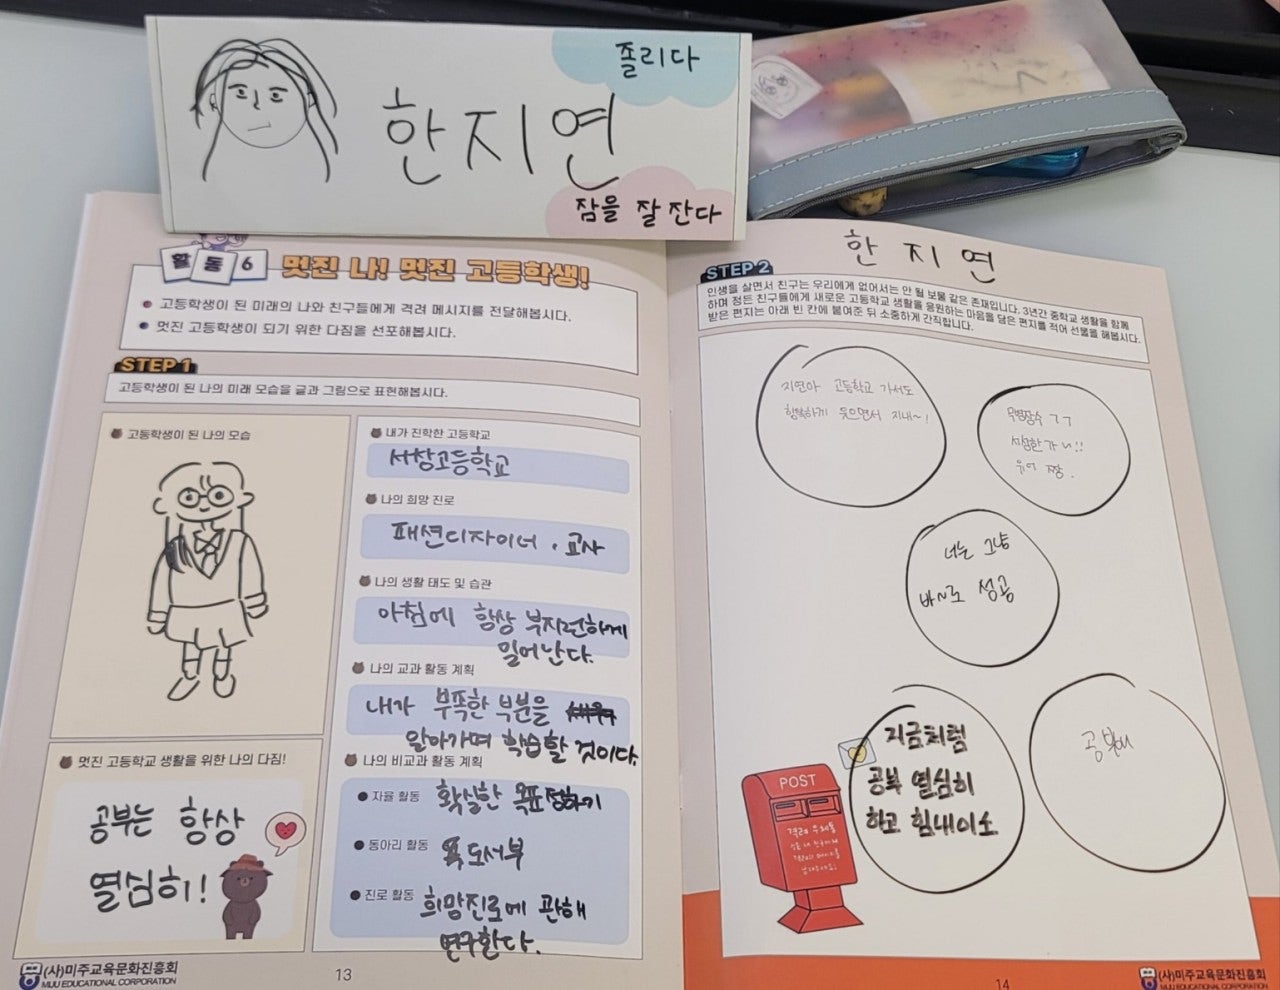 졸리다
한지연
잠을 잘 잔다
활동 6
멋진 나! 멋진 고등학생!
고등학생이 된 미래의 나와 친구들에게 격려 메시지를 전달해봅시다.
멋진 고등학생이 되기 위한 다짐을 선포해봅시다.
STEP 1
고등학생이 된 나의 미래 모습을 글과 그림으로 표현해봅시다.
고등학생이 된 나의 모습
내가 진학한 고등학교
서창고등학교
나의 희망 진로
패션디자이너, 교사
나의 생활 태도 및 습관
아침에 항상 부지런하게
일어난다.
나의 교과 활동 계획
내가 부족한 부분을
알아가며 학습할 것이다.
나의 비교과 활동 계획
자율 활동 확실한 목표 정하기
동아리 활동 도서부
진로 활동 희망진로에 관해
연구한다.
멋진 고등학교 생활을 위한 나의 다짐!
공부는 항상
열심히!
(사)미주교육문화진흥회
MIJU EDUCATIONAL CORPORATION
13
한지연
STEP 2
인생을 살면서 친구는 우리에게 없어서는 안 될 보물 같은 존재입니다. 3년간 중학교 생활을 함께
하며 정든 친구들에게 새로운 고등학교 생활을 응원하는 마음을 담은 편지를 적어 선물을 해봅시다.
받은 편지는 아래 빈 칸에 붙여준 뒤 소중하게 간직합니다.
지연아 고등학교 가서도
행복하게 웃으면서 지내~!
너는 그냥
바로 성공
지금처럼
공부 열심히
하고 힘내이소
공부해
POST
14
(사)미주교육문화진흥회
MIJU EDUCATIONAL CORPORATION